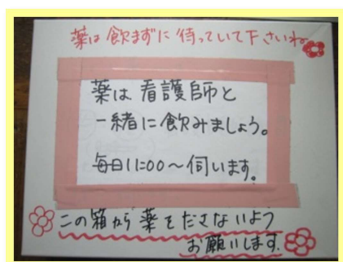 薬は飲まずに待っていて下さいね
薬は看護師と
一緒に飲みましょう。
毎日11:00～伺います。
この箱から薬をださないよう
お願いします